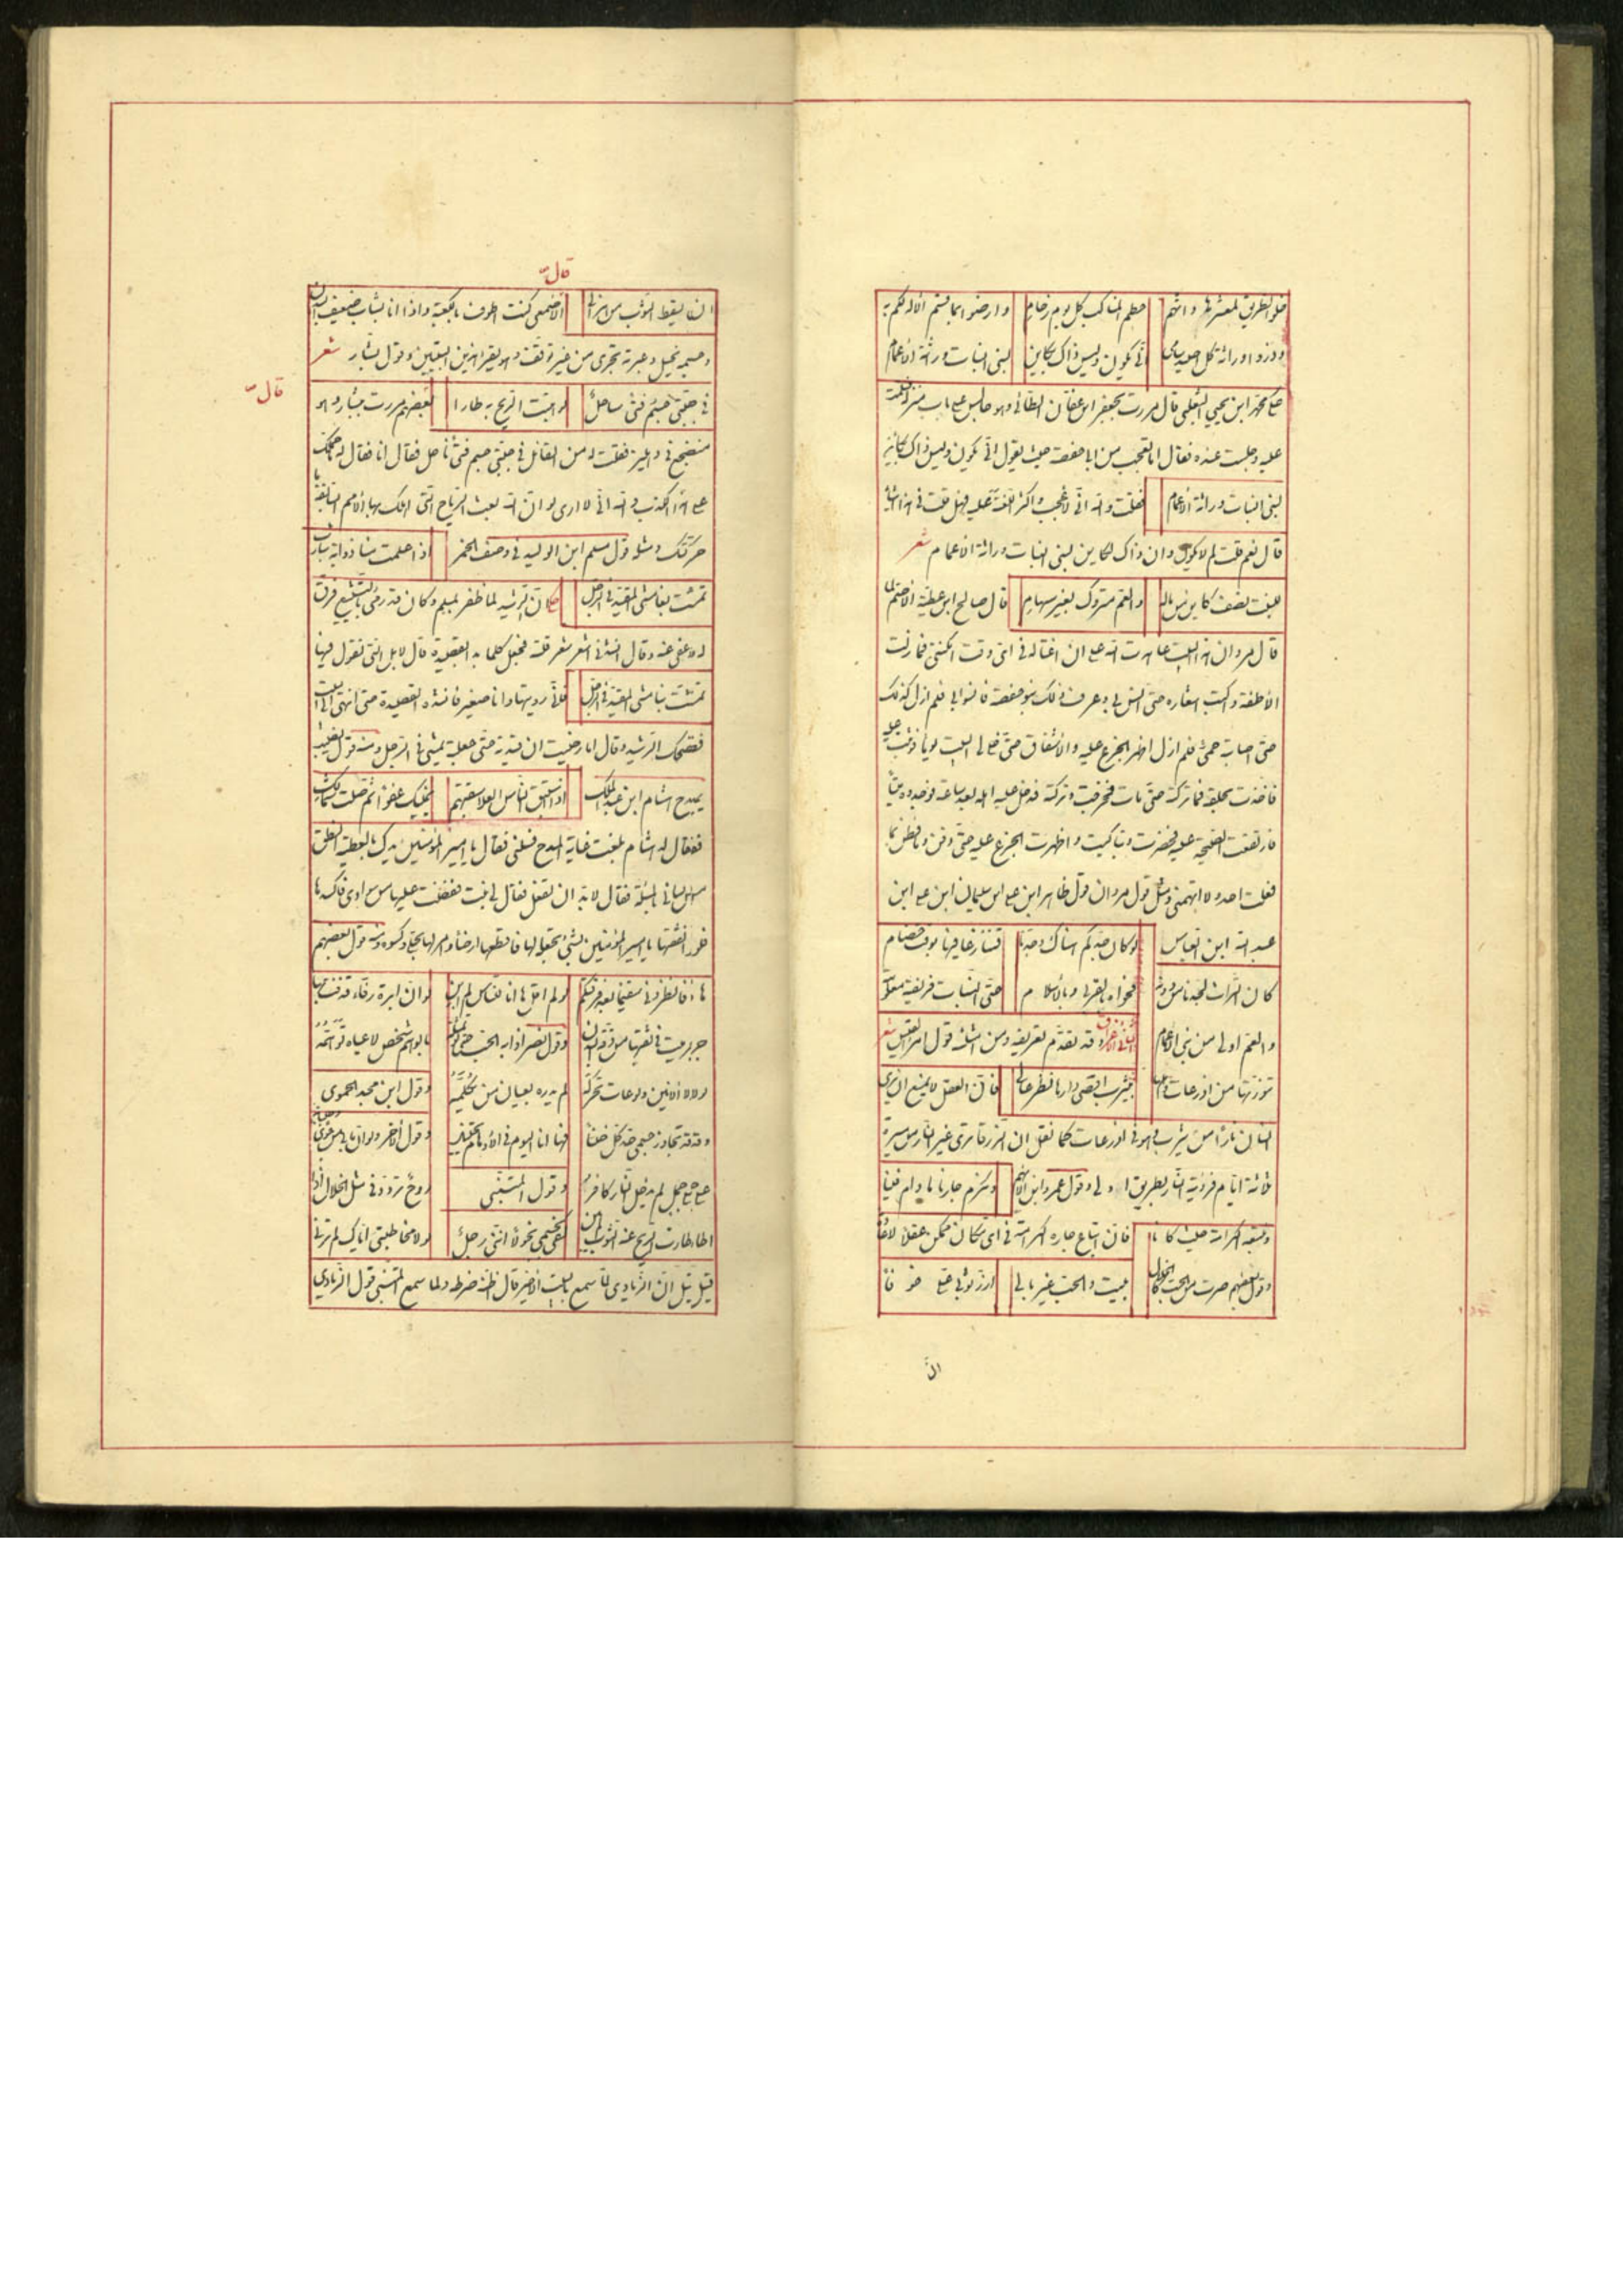 خلوا الطريق لمعشر عاداتهم حطم المناكب كل يوم زحام وارضوا بما قسم الاله لكم به
ودعوا وراثة كل اصيد سامى انى يكون وليس ذاك بكاين لبنى البنات وراثة الاعمام
محمد ابن يحيى التغلبى قال مررت بجعفر ابن عفان الطائى وهو جالس على باب منزله فسلمت
عليه وجلست عنده فقال اما تعجب من ابا حفصة حيث يقول انى يكون وليس ذاك بكاين
لبنى البنات وراثة الاعمام فقلت والله انى لاعجب واكثر اللعنة عليه فهل قلت فى هذا شيئا
قال نعم قلت لم لا يكون وان ذاك لكاين لبنى البنات وراثة الاعمام شعر
للبنت نصف كامل من ماله والعم متروك بغير سهام قال صالح ابن عطية الاضجم لما
قال مروان هذا البيت عاهدت الله على ان اغتاله فى اى وقت امكننى فما زلت
الاطفه واكتب اشعاره حتى انس بى وعرف ذلك بنو حفصة فانسوا بى فلم ازل كذلك
حتى اصابته حمى فلم ازل اظهر الجزع عليه والاشفاق حتى خلا لى البيت يوما فوثبت عليه
فاخذت بحلقه فما تركته حتى مات فخرجت وتركته فدخل عليه اهله بعد ساعة فوجدوه ميتا
فارتفعت الصيحة عليه فحضرت وتباكيت واظهرت الجزع عليه حتى دفن وما فطن بما
فعلت احد ولا اتهمنى ومثل قول مروان قول طاهر ابن على ابن سليمان ابن على ابن
عبد الله ابن العباس لو كان جدكم هناك وجدنا فتنازعا فيها لوقت خصام
كان التراث لجدنا من دونه فحواه بالقربى وبالاسلام حق البنات فريضة معلومة
والعم اولى من بنى الاعمام وقد تقدم تعريفه ومن امثلته قول امرء القيس شعر
تنورتها من اذرعات واهلها بيثرب ادنى دارها نظر عالى فان العقل لا يمنع ان يرى
انسان نارا من يثرب هو فى اذرعات كما نقل ان الزرقاء ترى غير النار من مسيرة
ثلاثة ايام فرؤية النار بطريق اولى وقول عمرو ابن الايهم ونكرم جارنا ما دام فينا
ونتبعه الكرامة حيث كانا فان اتباع جاره الكرامة فى اى مكان ممكن عقلا لا عادة
وقول بعضهم صرت من الحب كالخلال بليت والحب غير بالى ازر ثوبى على خوفا
ان
قال
ان يسقط الثوب من هزالى الاصمعى كنت اطوف بالكعبة واذا انا بشاب ضعيف البدن
وجسم نحيل وعبرته تجرى من غير توقف وهو يقرء هذين البيتين وقول بشار شعر
قال
فى حلتى جسم فتى ناحل لو هبت الريح به طارا بعضهم مررت ببشار وهو
منضجع فى دهليزه فقلت له من القائل فى حلتى جسم فتى ناحل فقال انا فقال له ما حملك
على هذا الكذب والله انى لا ارى لو ان الله بعث الرياح التى اهلك بها الامم السالفة ما
حركتك ومثله قول مسلم ابن الوليد فى وصف الخمر اذا ما علت منا ذوابة شارب
تمشت به مشى المقيد فى الوحل حكى ان الرشيد لما ظفر بمسلم وكان قد رمى بالتشيع فرق
له وعفى عنه وقال انشدنى اشعر شعر قلته فجعل كلما بدء بقصيدة قال لا بل التى تقول فيها
تمشت بنا مشى المقيد فى الوحل فانى رويتها وانا صغير فانشده القصيدة حتى انتهى الى البيت
فضحك الرشيد وقال اما رضيت ان قيدته حتى جعلته يمشى فى الوحل ومنه قول نصيب
يمدح هشام ابن عبد الملك اذا استبق الناس العلا سبقتهم يمينك عفوا ثم صلت شمالك
فقال له هشام بلغت غاية المدح فسلنى فقال يا امير المؤمنين يديك بالعطية انطق
من لسانى بالمسئلة فقال لا بد ان تفعل فقال لى بنت نفضت عليها من سوادى فكسدها
فلو انفقتها يا امير المؤمنين بشئ تجعله لها فاقطعها ارضا وامر لها بحلى وكسوة ومنه قول بعضهم
ها فانظرونى سقيما بعد فرقتكم لو لم اقل ها انا للناس لم ابن لو ان ابرة رفاء
جريت فى ثقبها من دقة البدن وقول نصر ابو الهم شخص لاعياه توهمه
لولا الانين ولوعات تحركه لم يدره بعيان من يكلمه وقول ابن محمد الحموى
وقد تجاوز جسمى حد كل ضنا فها انا اليوم فى الاوهام تخييل وقول الاخر ولو ان ما بى من جوى وصبابة
على جمل لم يدخل النار كافر وقول المتنبى روح تردد فى مثل الخلال اذا
اطارت الريح عنه الثوب لم يبن كفى بجسمى نحولا اننى رجل لولا مخاطبتى اياك لم ترنى
قيل ان الزيادى لما سمع البيت الاخير قال اظنه ضرطة ولما سمع المتنبى قول الزيادى